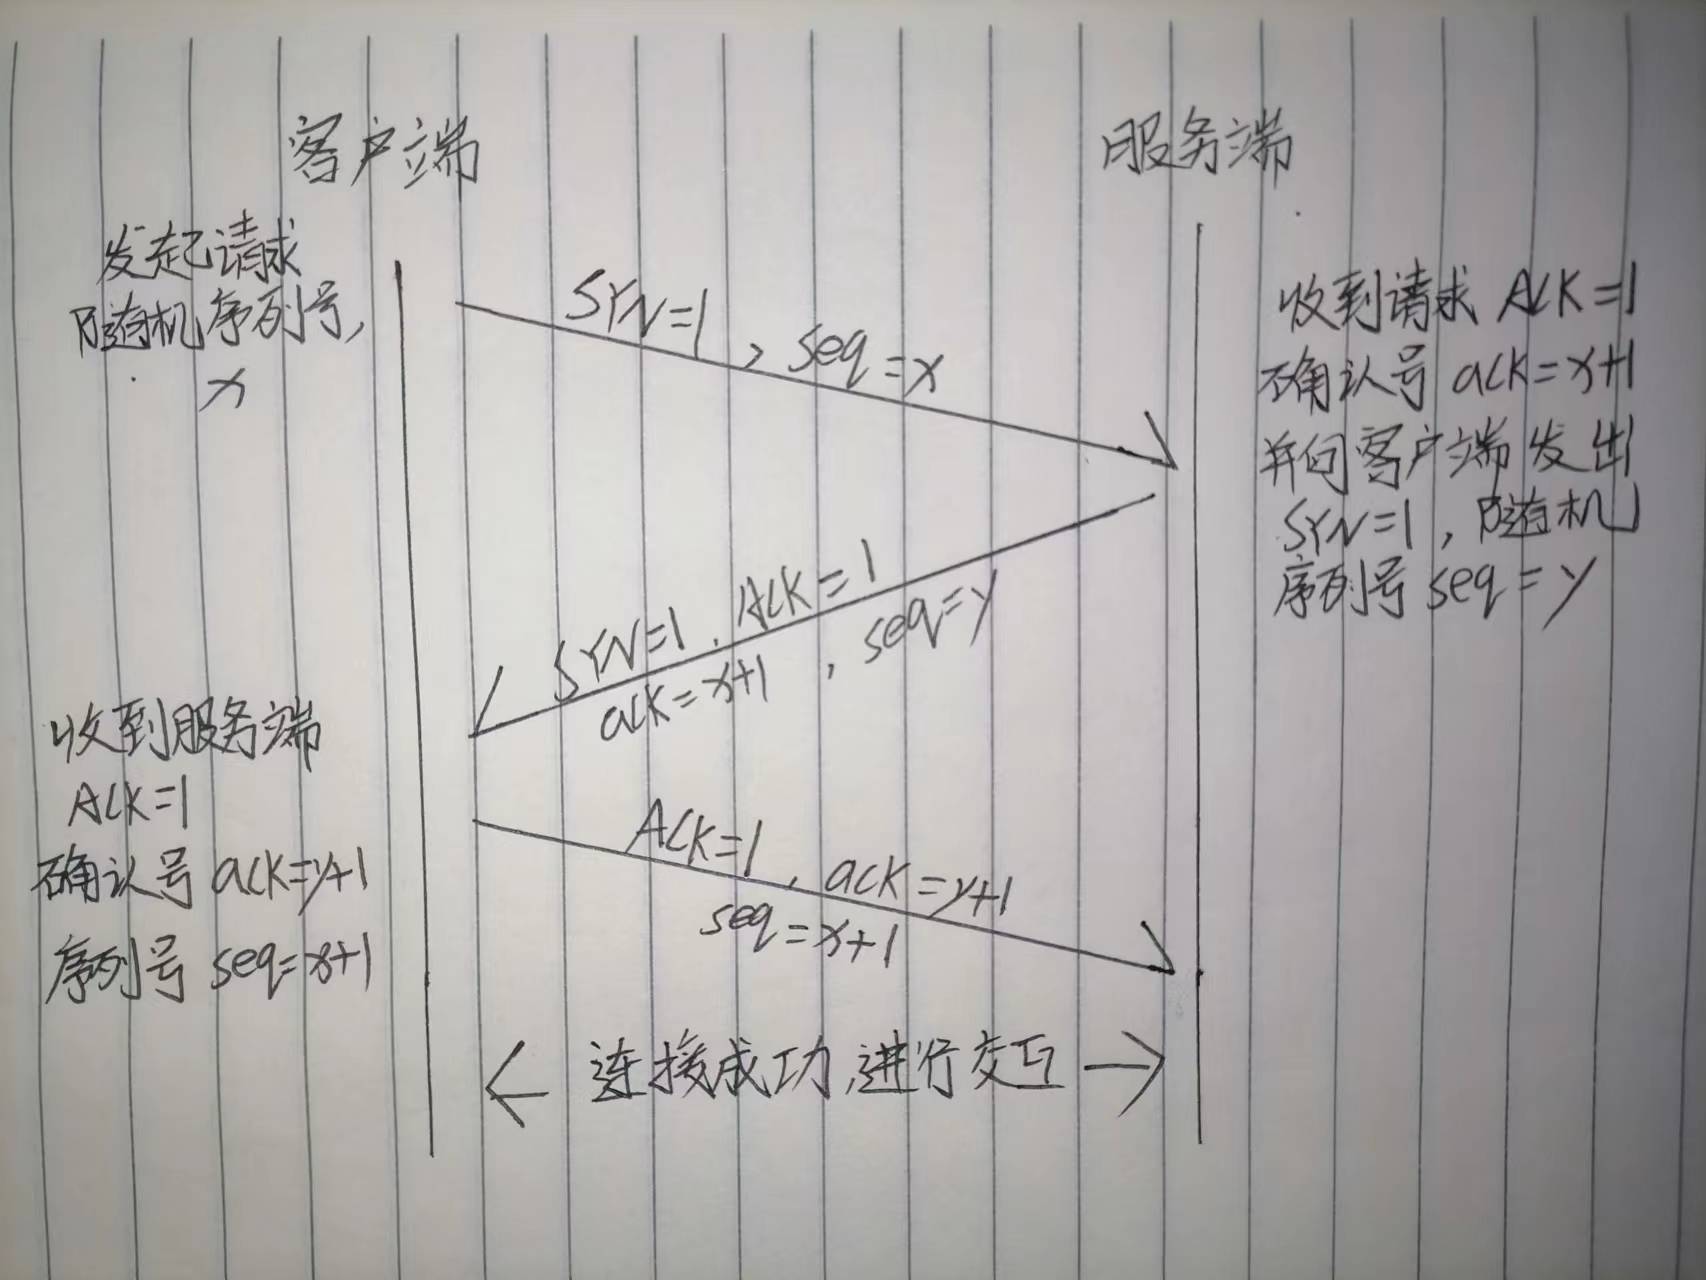 客户端
服务端
发起请求
随机序列号,
x
SYN=1 , seq=x
收到请求 ACK=1
确认号 ack=x+1
并向客户端发出
SYN=1 , 随机
序列号 seq=y
SYN=1 , ACK=1
ack=x+1 , seq=y
收到服务端
ACK=1
确认号 ack=y+1
序列号 seq=x+1
ACK=1 , ack=y+1
seq=x+1
连接成功,进行交互